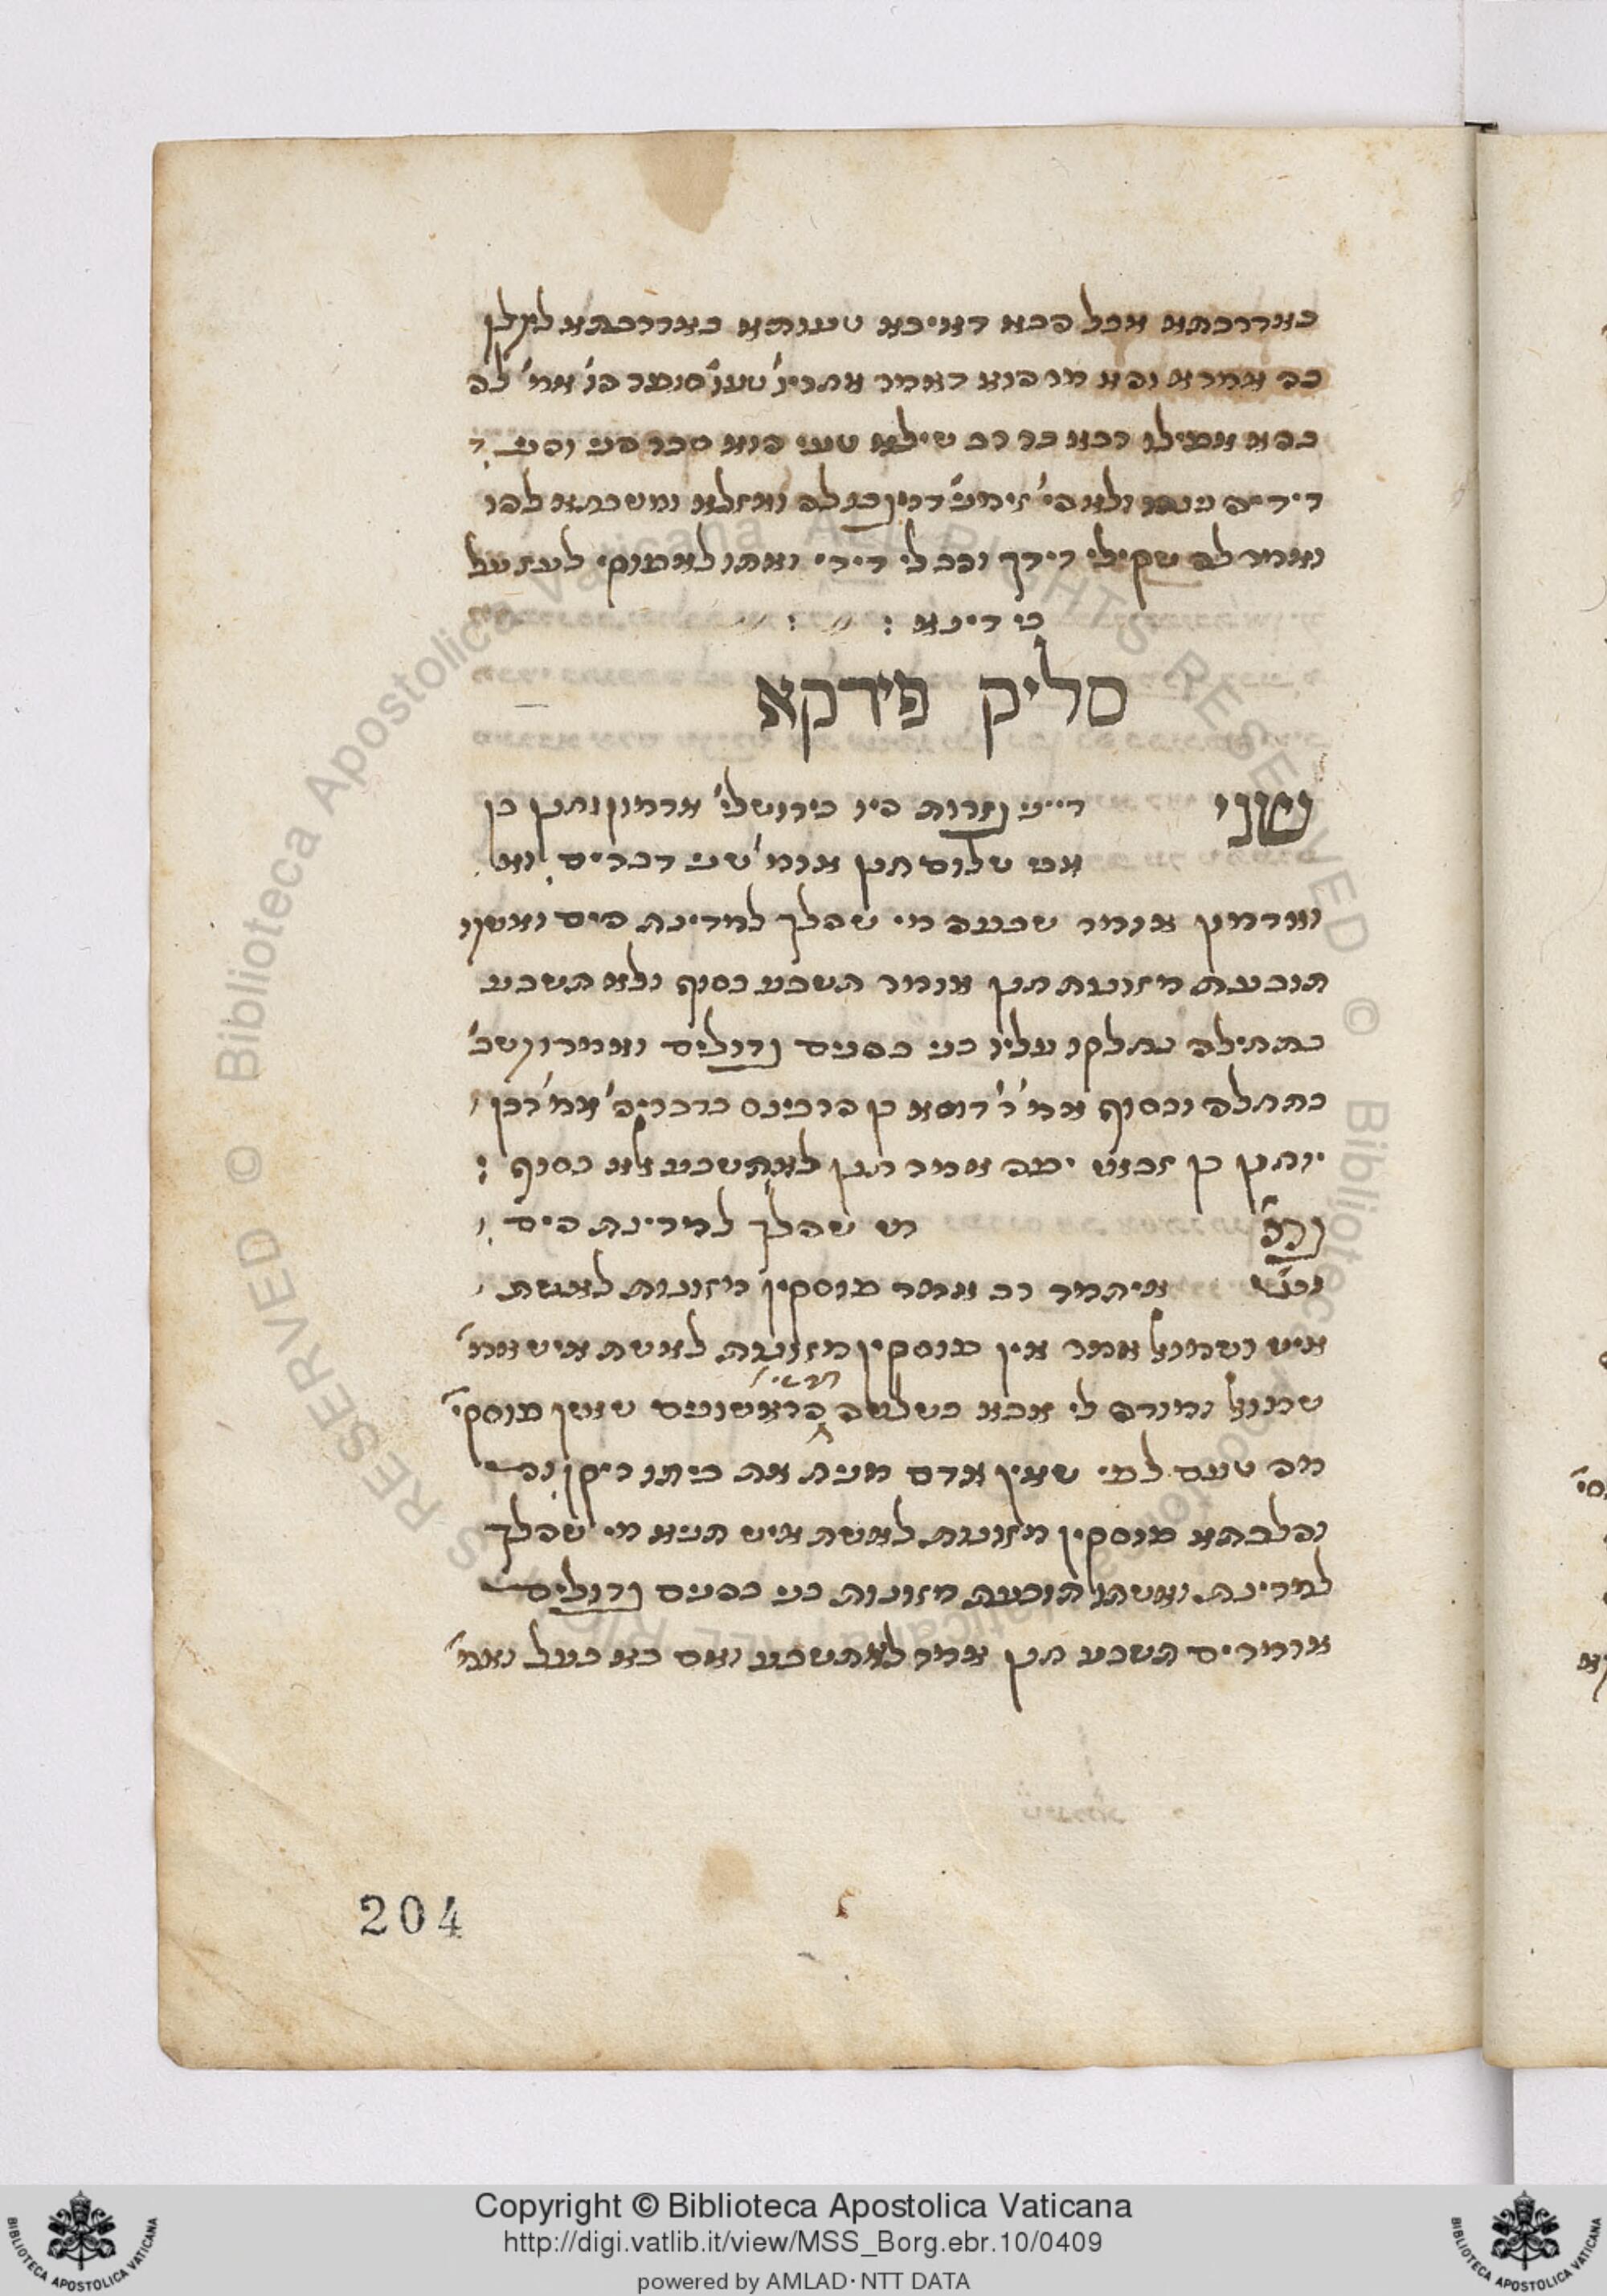 באדרכתא אבל הכא דאיכא טעותא באדרכתא לתלן
בה אמרא והא מר הוא דאמר אתרין טעו סופר הו׳ אמ׳ לה
בהא אפילו רבא בר רב שילא טעי הוא סבר הני והני ד
דידיה נינהו ולא הי׳ זימנ׳ דמיקבלה ואזלא ומשבחא להו
ואמר לה שקילי דידך והב לי דידי ואתו לאפוקי לעז על
בי דינא :
סליק פירקא
שני
דייני גזרות היו בירושלי׳ אדמון וחנן בן
אבשלום חנן אומ׳ שני דברים וא
ואדמון אומר שבעה מי שהלך למדינת הים ואשתו
תובעת מזונות חנן אומר תשבע בסוף ולא תשבע
בתחילה נחלקו עליו בני כהנים גדולים ואמרו תשב׳
בתחלה ובסוף אמ׳ ר׳ דוסא בן הרכינס כדבריה׳ אמ׳ רבן
יוחנן בן זכאי יפה אמר חנן לא תשבע אלא בסוף :
גמ׳
מי שהלך למדינת הים
וכו׳ איתמר רב אמר פוסקין מזונות לאשת
איש ושמואל אמר אין פוסקין מזונות לאשת איש אמ׳
שמואל ומודה לי אבא בשלשה חדשי׳ הראשונים שאין פוסקי׳
מה טעם לפי שאין אדם מניח את ביתו ריקן
והלכתא פוסקין מזונות לאשת איש תניא מי שהלך
למדינת ואשתו תובעת מזונות בני כהנים גדולים
אומרים תשבע חנן אמר לא תשבע ואם בא בעל ואמ׳
204
Copyright © Biblioteca Apostolica Vaticana
http://digi.vatlib.it/view/MSS_Borg.ebr.10/0409
powered by AMLAD·NTT DATA